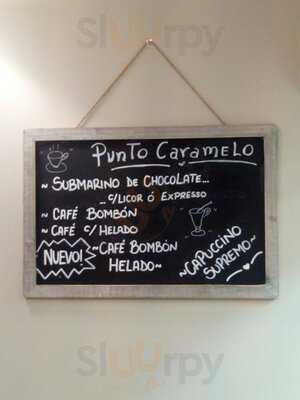 Sluurpy
Punto Caramelo
~ SUBMARINO DE CHOCOLATE...
... C/LICOR Ó EXPRESSO
~ CAFÉ BOMBÓN
~ CAFÉ C/ HELADO
NUEVO!
~CAFÉ BOMBÓN
HELADO~
~CAPUCCINO
SUPREMO~
Sluurpy